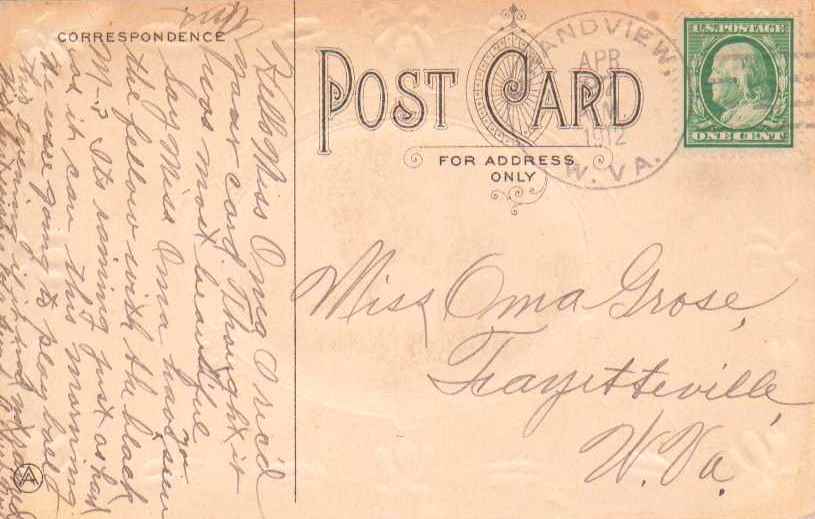 CORRESPONDENCE
POST CARD
FOR ADDRESS
ONLY
ANDVIEW,
APR
1912
W. VA.
U.S. POSTAGE
ONE CENT
Miss Oma Grose,
Fayetteville,
W. Va.
Hello Miss Oma I rec'd
your card Thought it
was most beautiful
Say Miss Oma have you seen
the fellow with the black
M-? Its raining just as hard
as it can this morning
We were going to play ball
this evening if it had not rained